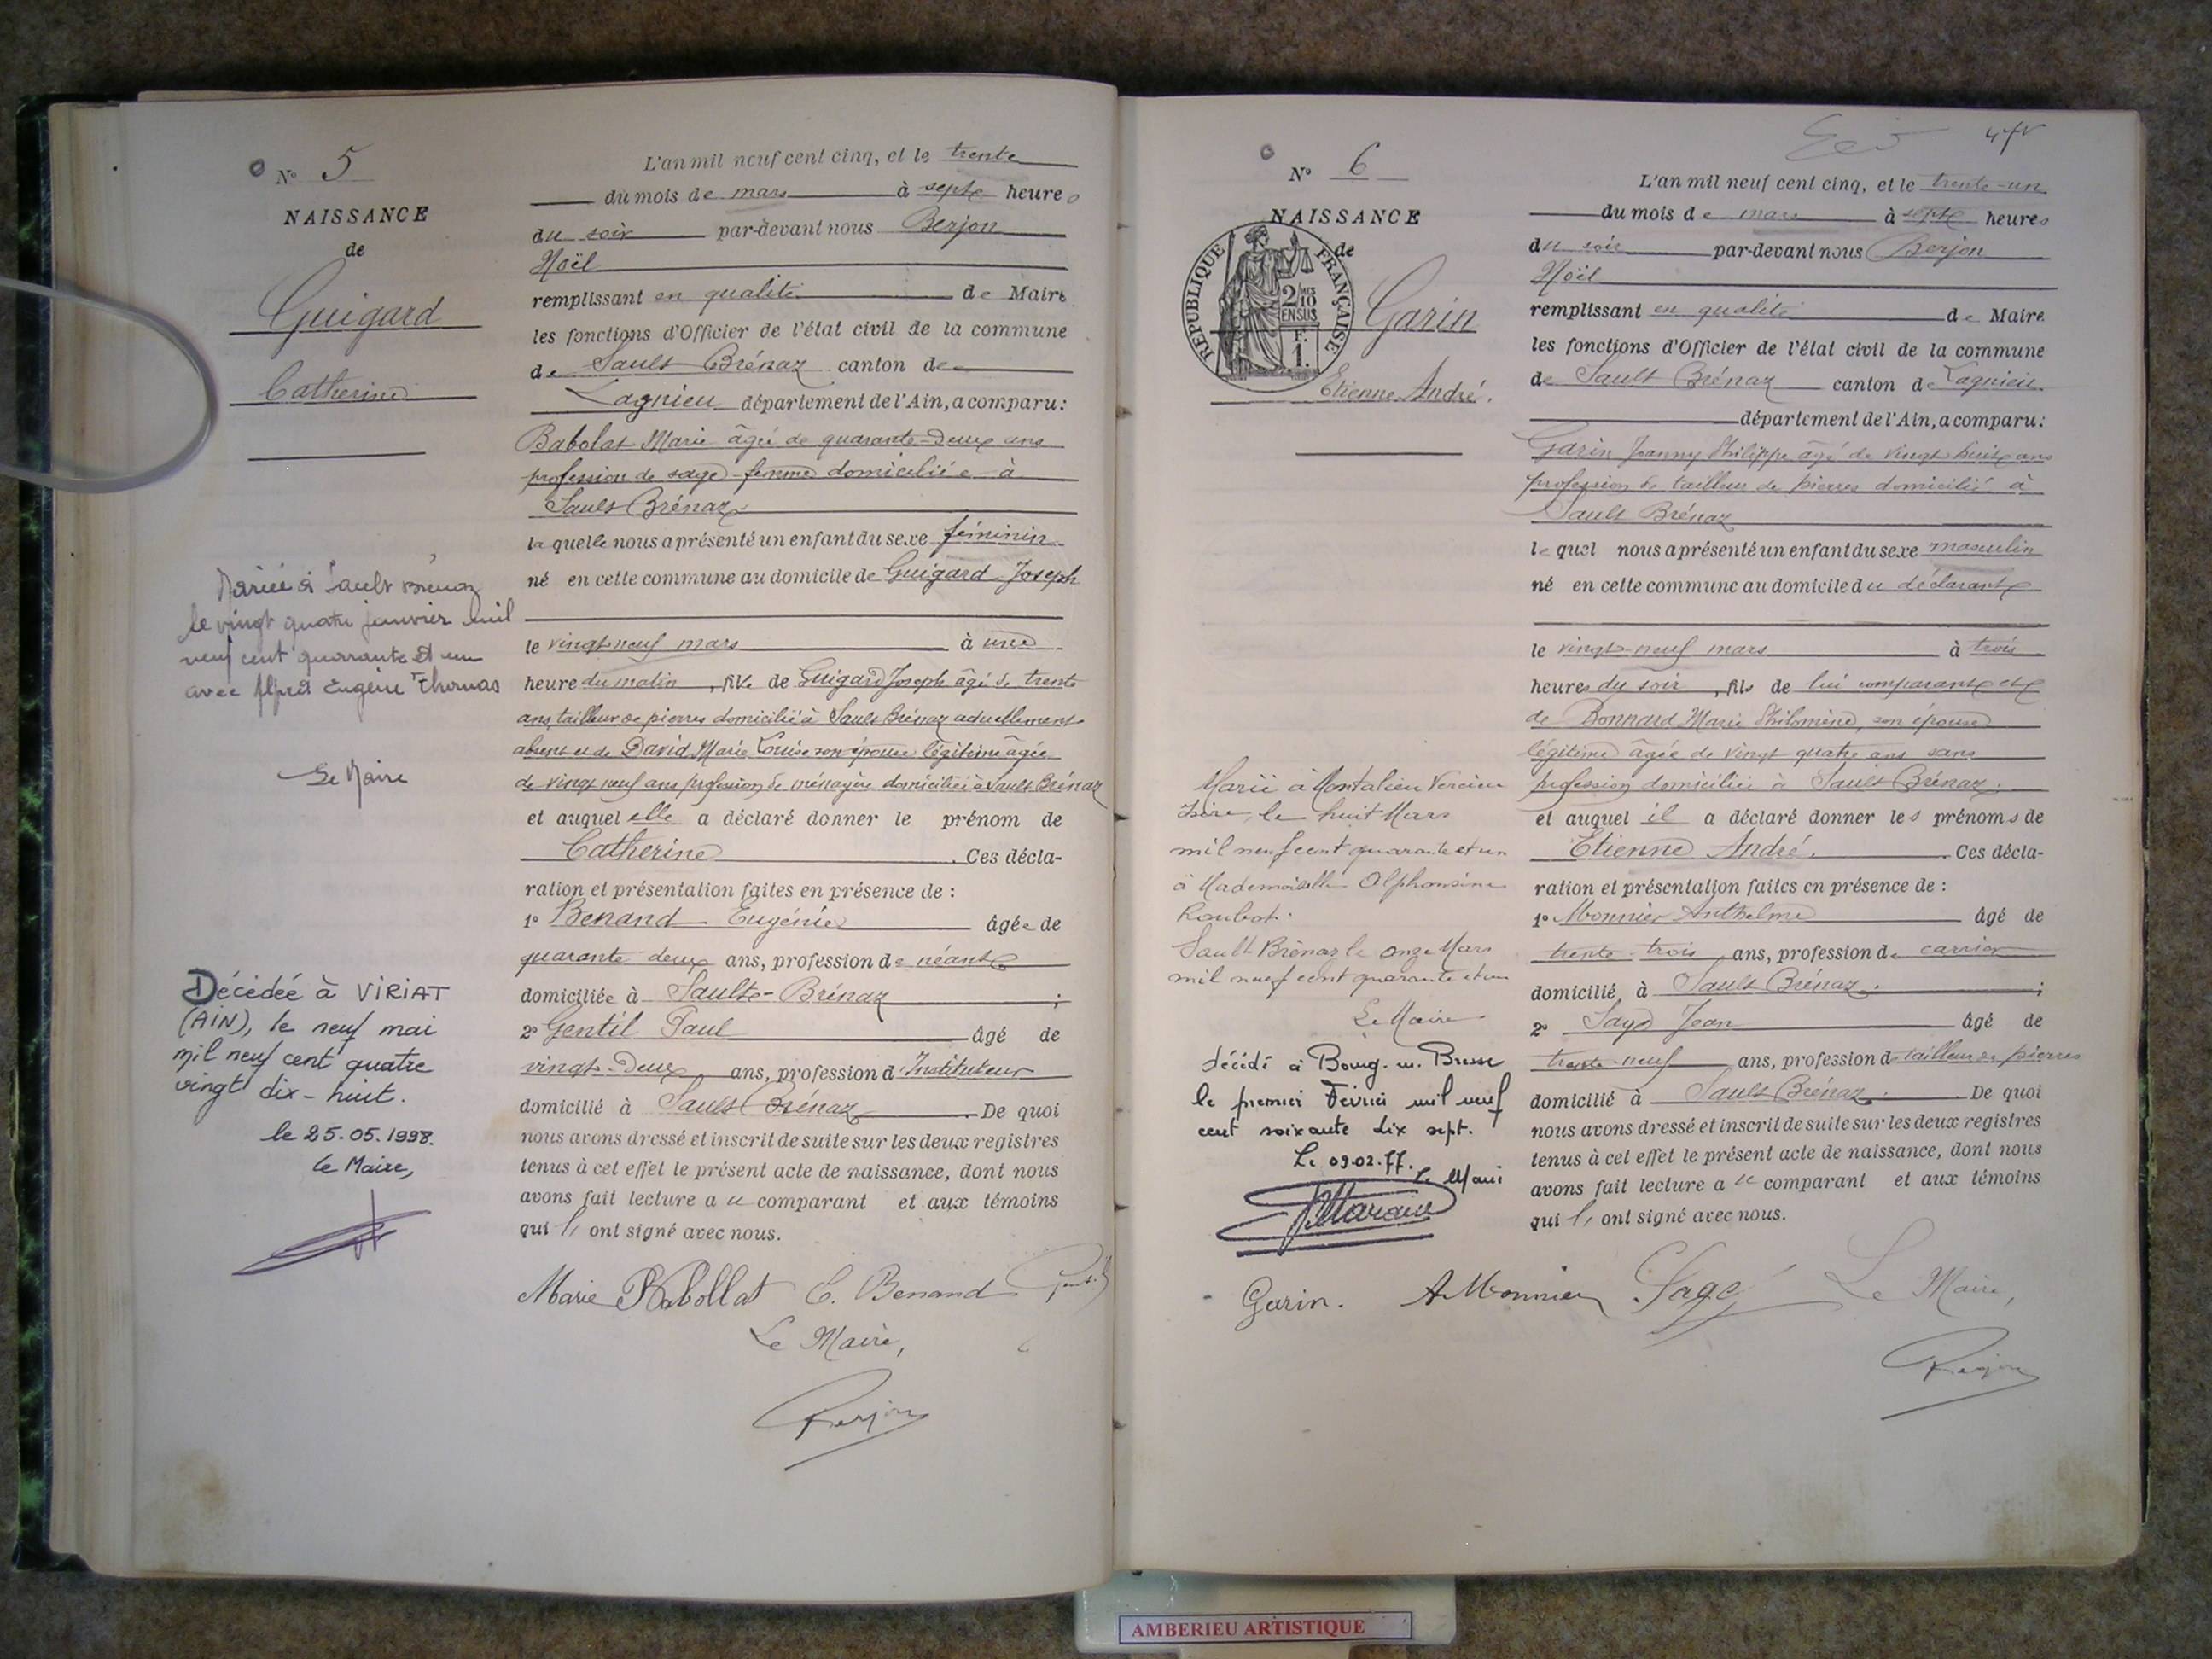 N° 5
NAISSANCE
de
Guigard
Catherine
Mariée à Sault Brénaz
le vingt quatre janvier mil
neuf cent quarante et un
avec Alfred Eugène Thomas
Le Maire
Décédée à VIRIAT
(AIN), le neuf mai
mil neuf cent quatre
vingt dix-huit.
le 25.05.1998.
Le Maire,
L'an mil neuf cent cinq, et le trente
du mois de mars à sept heures
du soir par-devant nous Berjon
Noël
remplissant en qualité de Maire
les fonctions d'Officier de l'état civil de la commune
de Sault Brénaz canton de
Lagnieu département de l'Ain, a comparu:
Babolat Marie âgée de quarante-deux ans
profession de sage-femme domiciliée à
Sault Brénaz
laquelle nous a présenté un enfant du sexe féminin
né en cette commune au domicile de Guigard Joseph
le vingt-neuf mars à une
heure du matin, fille de Guigard Joseph âgé de trente
ans, tailleur de pierres domicilié à Sault Brénaz actuellement
absent et de David Marie Louise son épouse légitime âgée
de vingt neuf ans profession de ménagère domiciliée à Sault Brénaz
et auquel elle a déclaré donner le prénom de
Catherine. Ces décla-
ration et présentation faites en présence de :
1° Benand Eugénie âgée de
quarante deux ans, profession de néant
domiciliée à Sault-Brénaz ;
2° Gentil Paul âgé de
vingt-deux ans, profession d'Instituteur
domicilié à Sault Brénaz. De quoi
nous avons dressé et inscrit de suite sur les deux registres
tenus à cet effet le présent acte de naissance, dont nous
avons fait lecture au comparant et aux témoins
qui l'ont signé avec nous.
Marie Babollat E. Benand Gentil
Le Maire,
Berjon
N° 6
NAISSANCE
de
RÉPUBLIQUE FRANÇAISE
2/10 MES
EN SUS
F.
1.
Garin
Etienne André.
Marié à Montalieu Vercieu
Isère, le huit Mars
mil neuf cent quarante et un
à Mademoiselle Alphonsine
Roubot.
Sault Brénaz le onze Mars
mil neuf cent quarante et un
Le Maire
Décédé à Bourg-en-Bresse
le premier Février mil neuf
cent soixante dix sept.
Le 09.02.77.
Le Maire
L'an mil neuf cent cinq, et le trente-un
du mois de mars à sept heures
du soir par-devant nous Berjon
Noël
remplissant en qualité de Maire
les fonctions d'Officier de l'état civil de la commune
de Sault Brénaz canton de Lagnieu.
département de l'Ain, a comparu:
Garin Joanny Philippe âgé de vingt huit ans
profession de tailleur de pierres domicilié à
Sault Brénaz
lequel nous a présenté un enfant du sexe masculin
né en cette commune au domicile du déclarant
le vingt-neuf mars à trois
heures du soir, fils de lui comparant et
de Bonnard Marie Philomène, son épouse
légitime âgée de vingt quatre ans sans
profession domiciliée à Sault Brénaz.
et auquel il a déclaré donner les prénoms de
Etienne André. Ces décla-
ration et présentation faites en présence de :
1° Monnier Anthelme âgé de
trente-trois ans, profession de carrier
domicilié à Sault Brénaz. ;
2° Sage Jean âgé de
trente-neuf ans, profession de tailleur de pierres
domicilié à Sault Brénaz. De quoi
nous avons dressé et inscrit de suite sur les deux registres
tenus à cet effet le présent acte de naissance, dont nous
avons fait lecture au comparant et aux témoins
qui l'ont signé avec nous.
Garin. A Monnier Sage Le Maire,
Berjon
AMBERIEU ARTISTIQUE